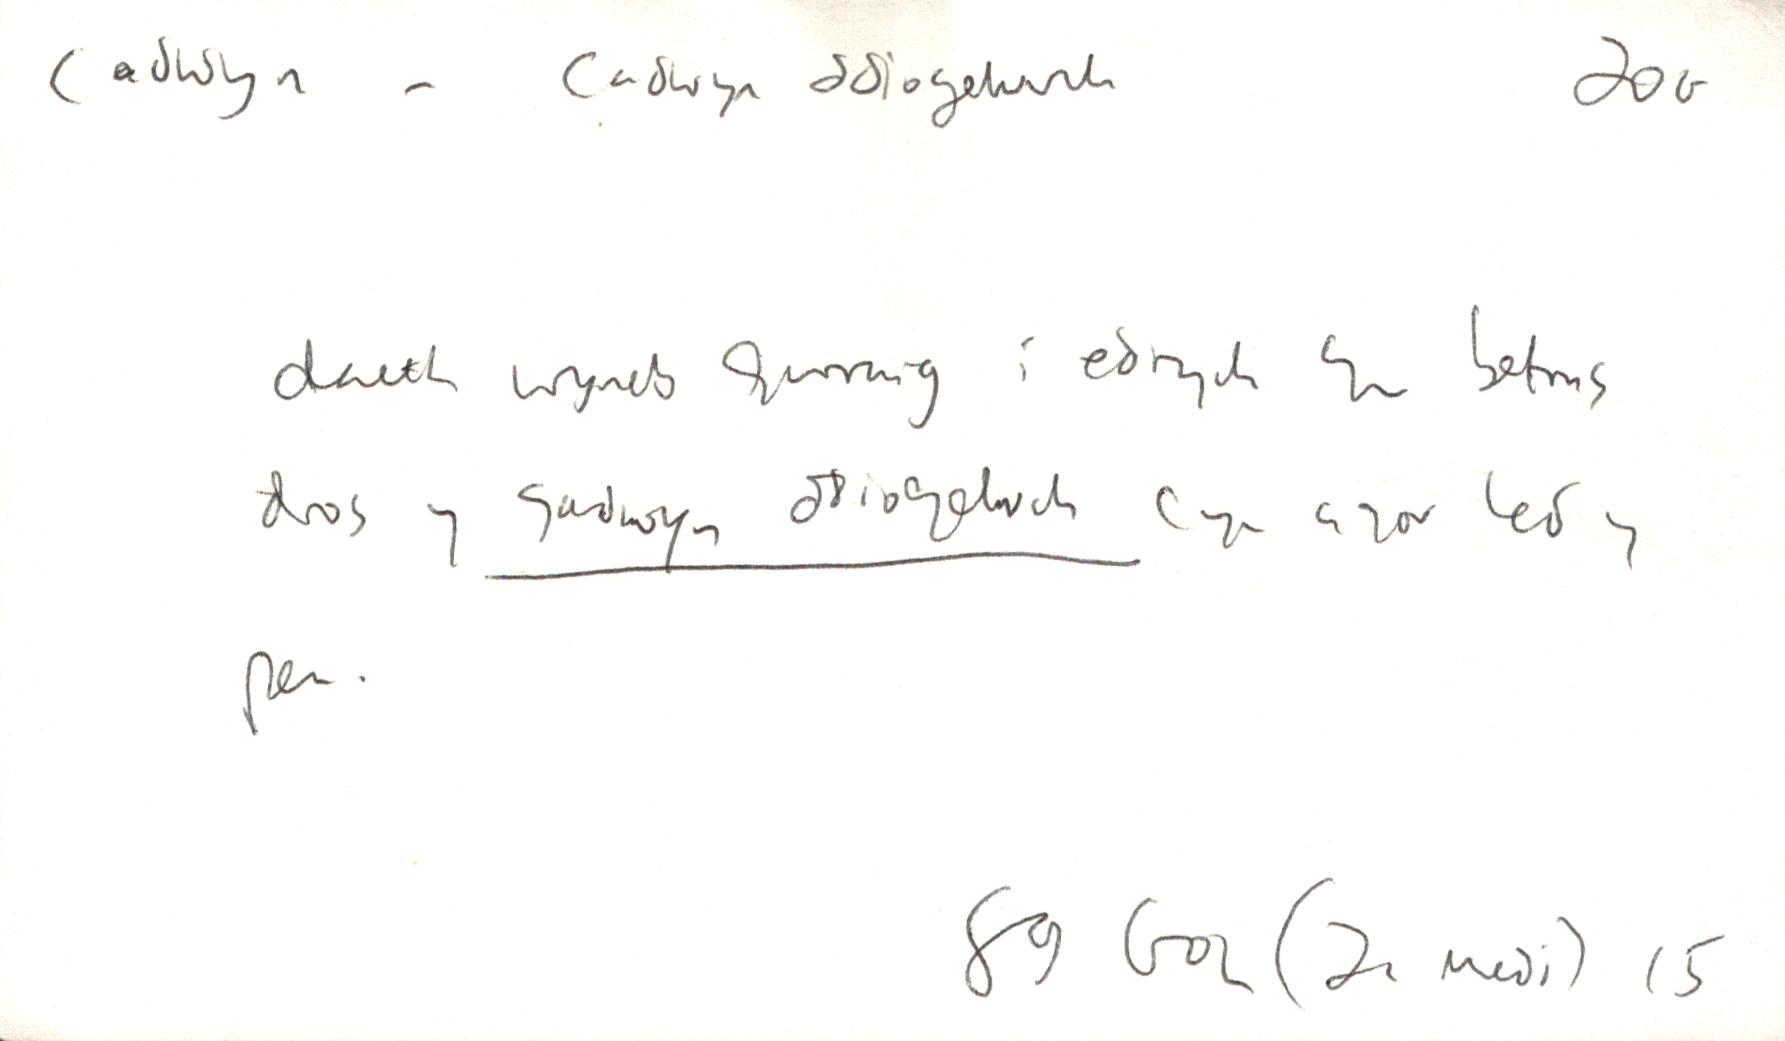 Cadwyn - Cadwyn ddiogelwch 20G
daeth wyneb i edrych yn betrus
dros y gadwyn ddiogelwch cyn agor led y
pen.
89 Gol (21 Medi) 15